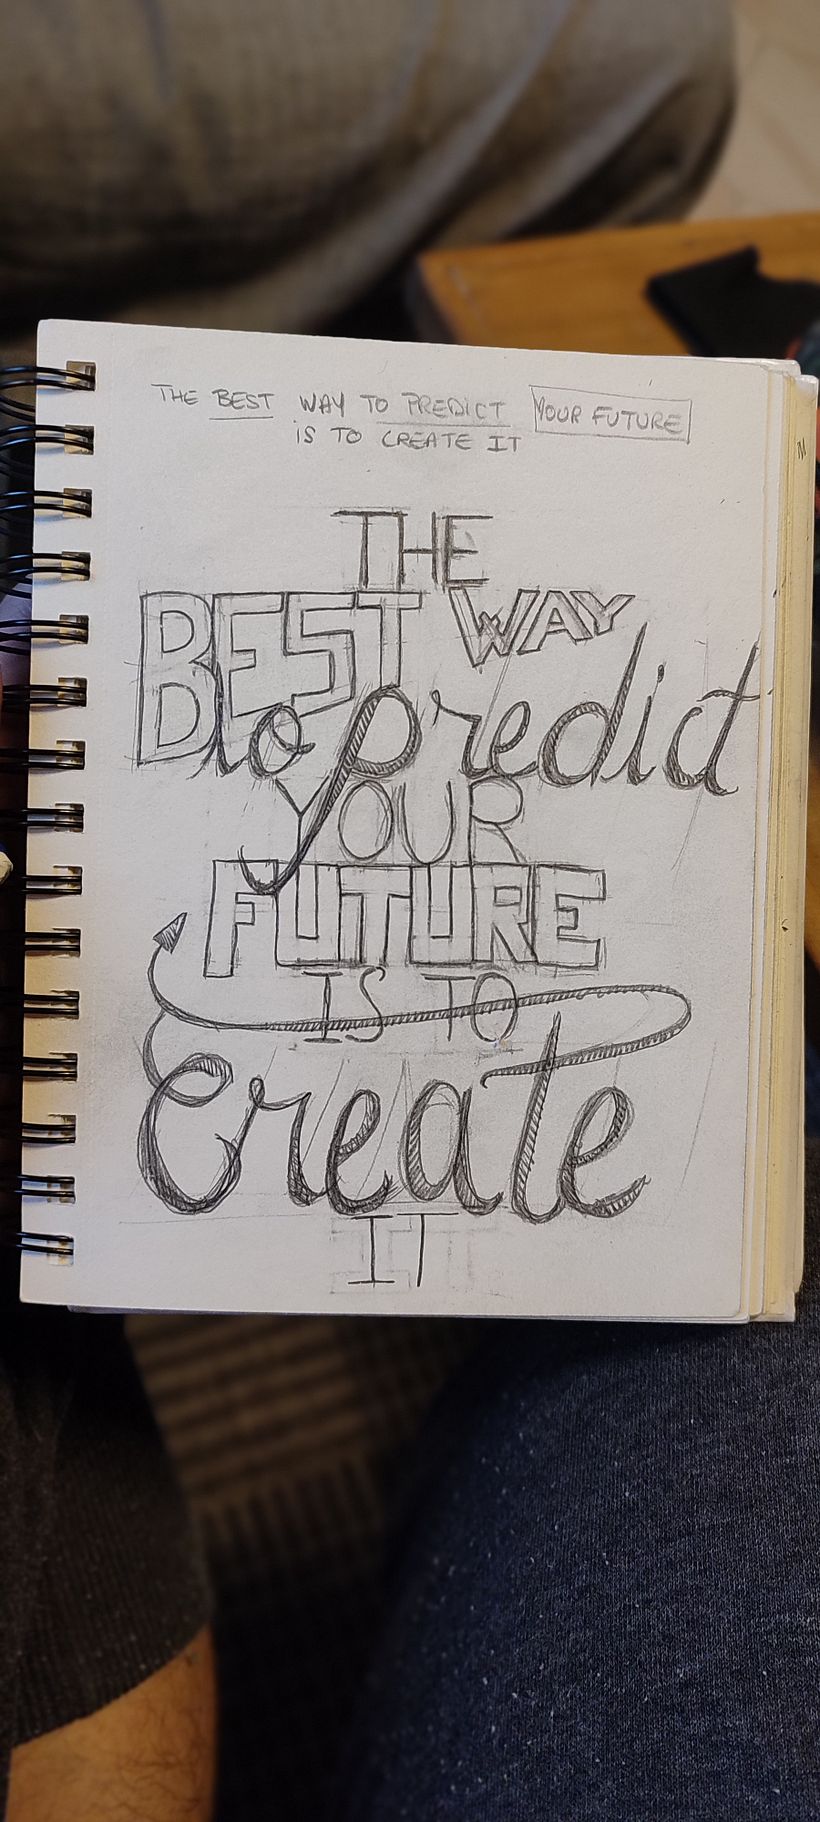 THE BEST WAY TO PREDICT YOUR FUTURE
IS TO CREATE IT
THE
BEST WAY
to predict
YOUR
FUTURE
IS TO
Create
IT